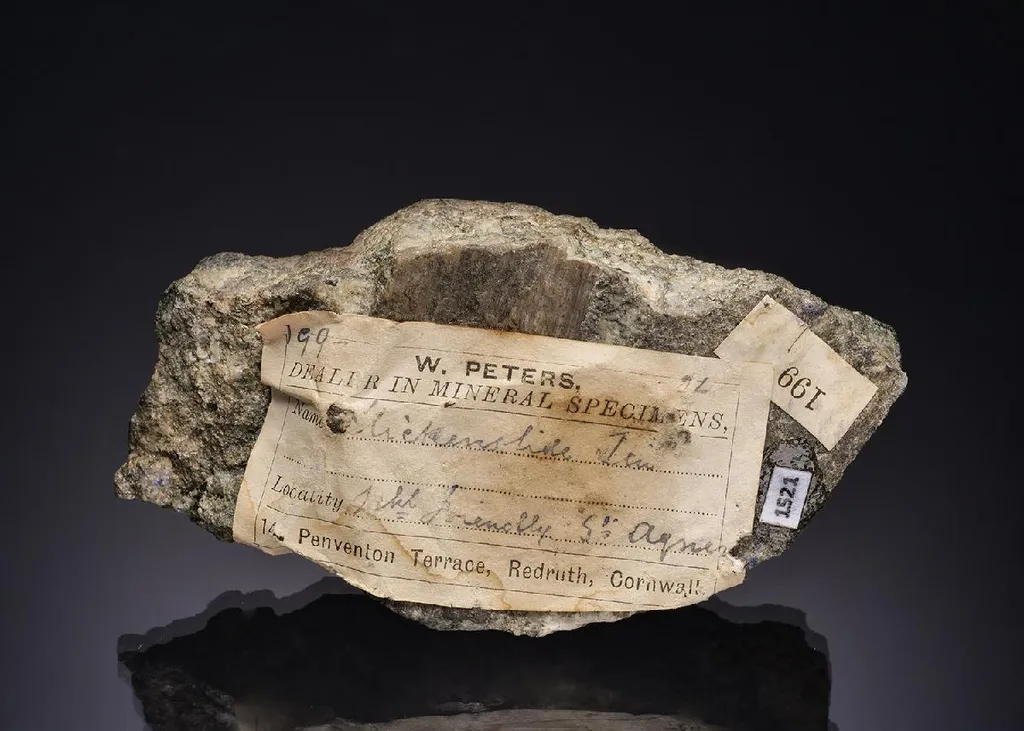 199
W. PETERS,
DEALER IN MINERAL SPECIMENS,
Name Slickenslide Tin
Locality Friendly St Agnes
14, Penventon Terrace, Redruth, Cornwall.
199
1521